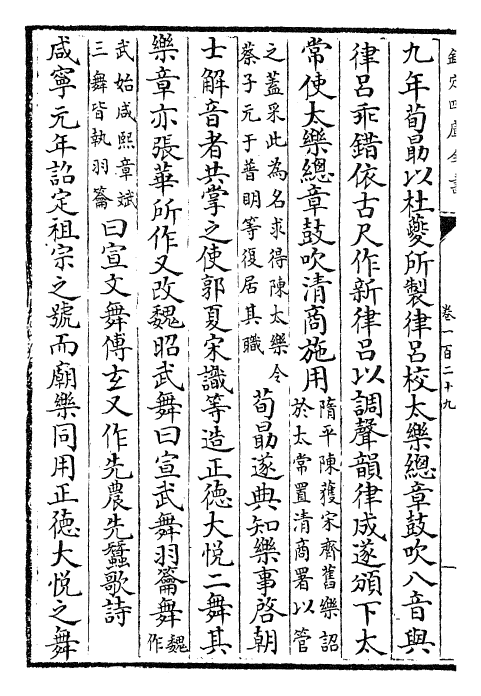 欽定四庫全書
卷一百二十九
九年荀勗以杜夔所製律呂校太樂總章鼓吹八音與
律呂乖錯依古尺作新律呂以調聲韻律成遂頒下太
常使太樂總章鼓吹清商施用
隋平陳獲宋齊舊樂詔
於太常置清商署以管
之蓋采此為名求得陳太樂令
蔡子元于普明等復居其職
荀勗遂典知樂事啓朝
士解音者共掌之使郭夏宋識等造正德大悅二舞其
樂章亦張華所作又改魏昭武舞曰宣武舞羽籥舞
魏
作
武始咸熙章斌
三舞皆執羽籥
曰宣文舞傅玄又作先農先蠶歌詩
咸寧元年詔定祖宗之號而廟樂同用正德大悅之舞